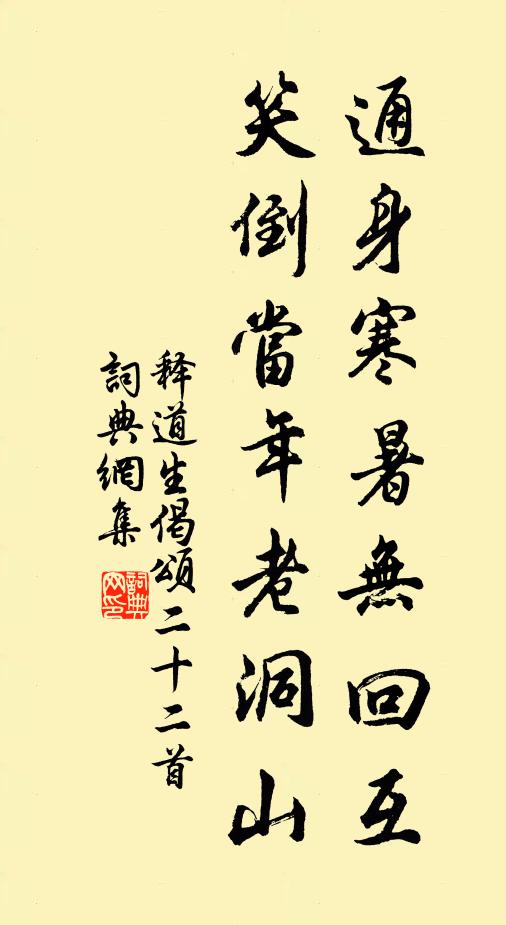 通身寒暑無回互
笑倒當年老洞山
释道生偈頌二十二首
詞典網集
詞典網印